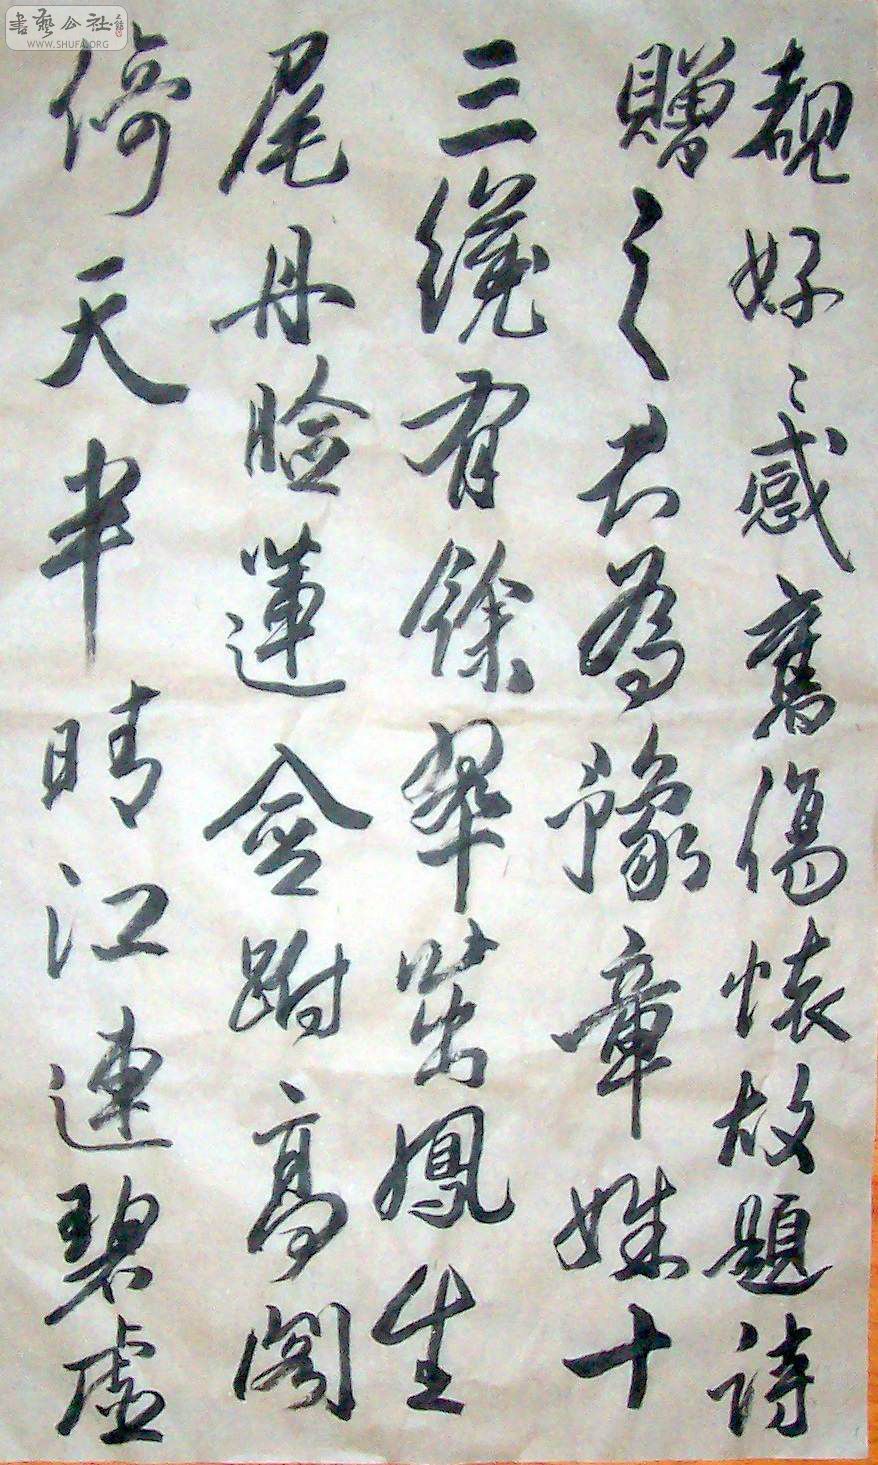 覩好〻感舊傷懷故題詩
贈之君爲豫章姝十
三纔有餘翠茁鳳生
尾丹臉蓮含跗高閣
倚天半晴江連碧虛
書藝公社
WWW.SHUFA.ORG